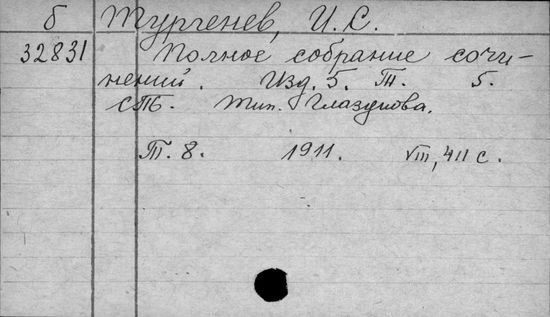 б Тургенев, И. С.
32831 Полное собрание сочи-
нений. Изд. 5. Т. 5.
СПб. Тип. Глазунова.
Т. 8. 1911. VIII, 411 с.